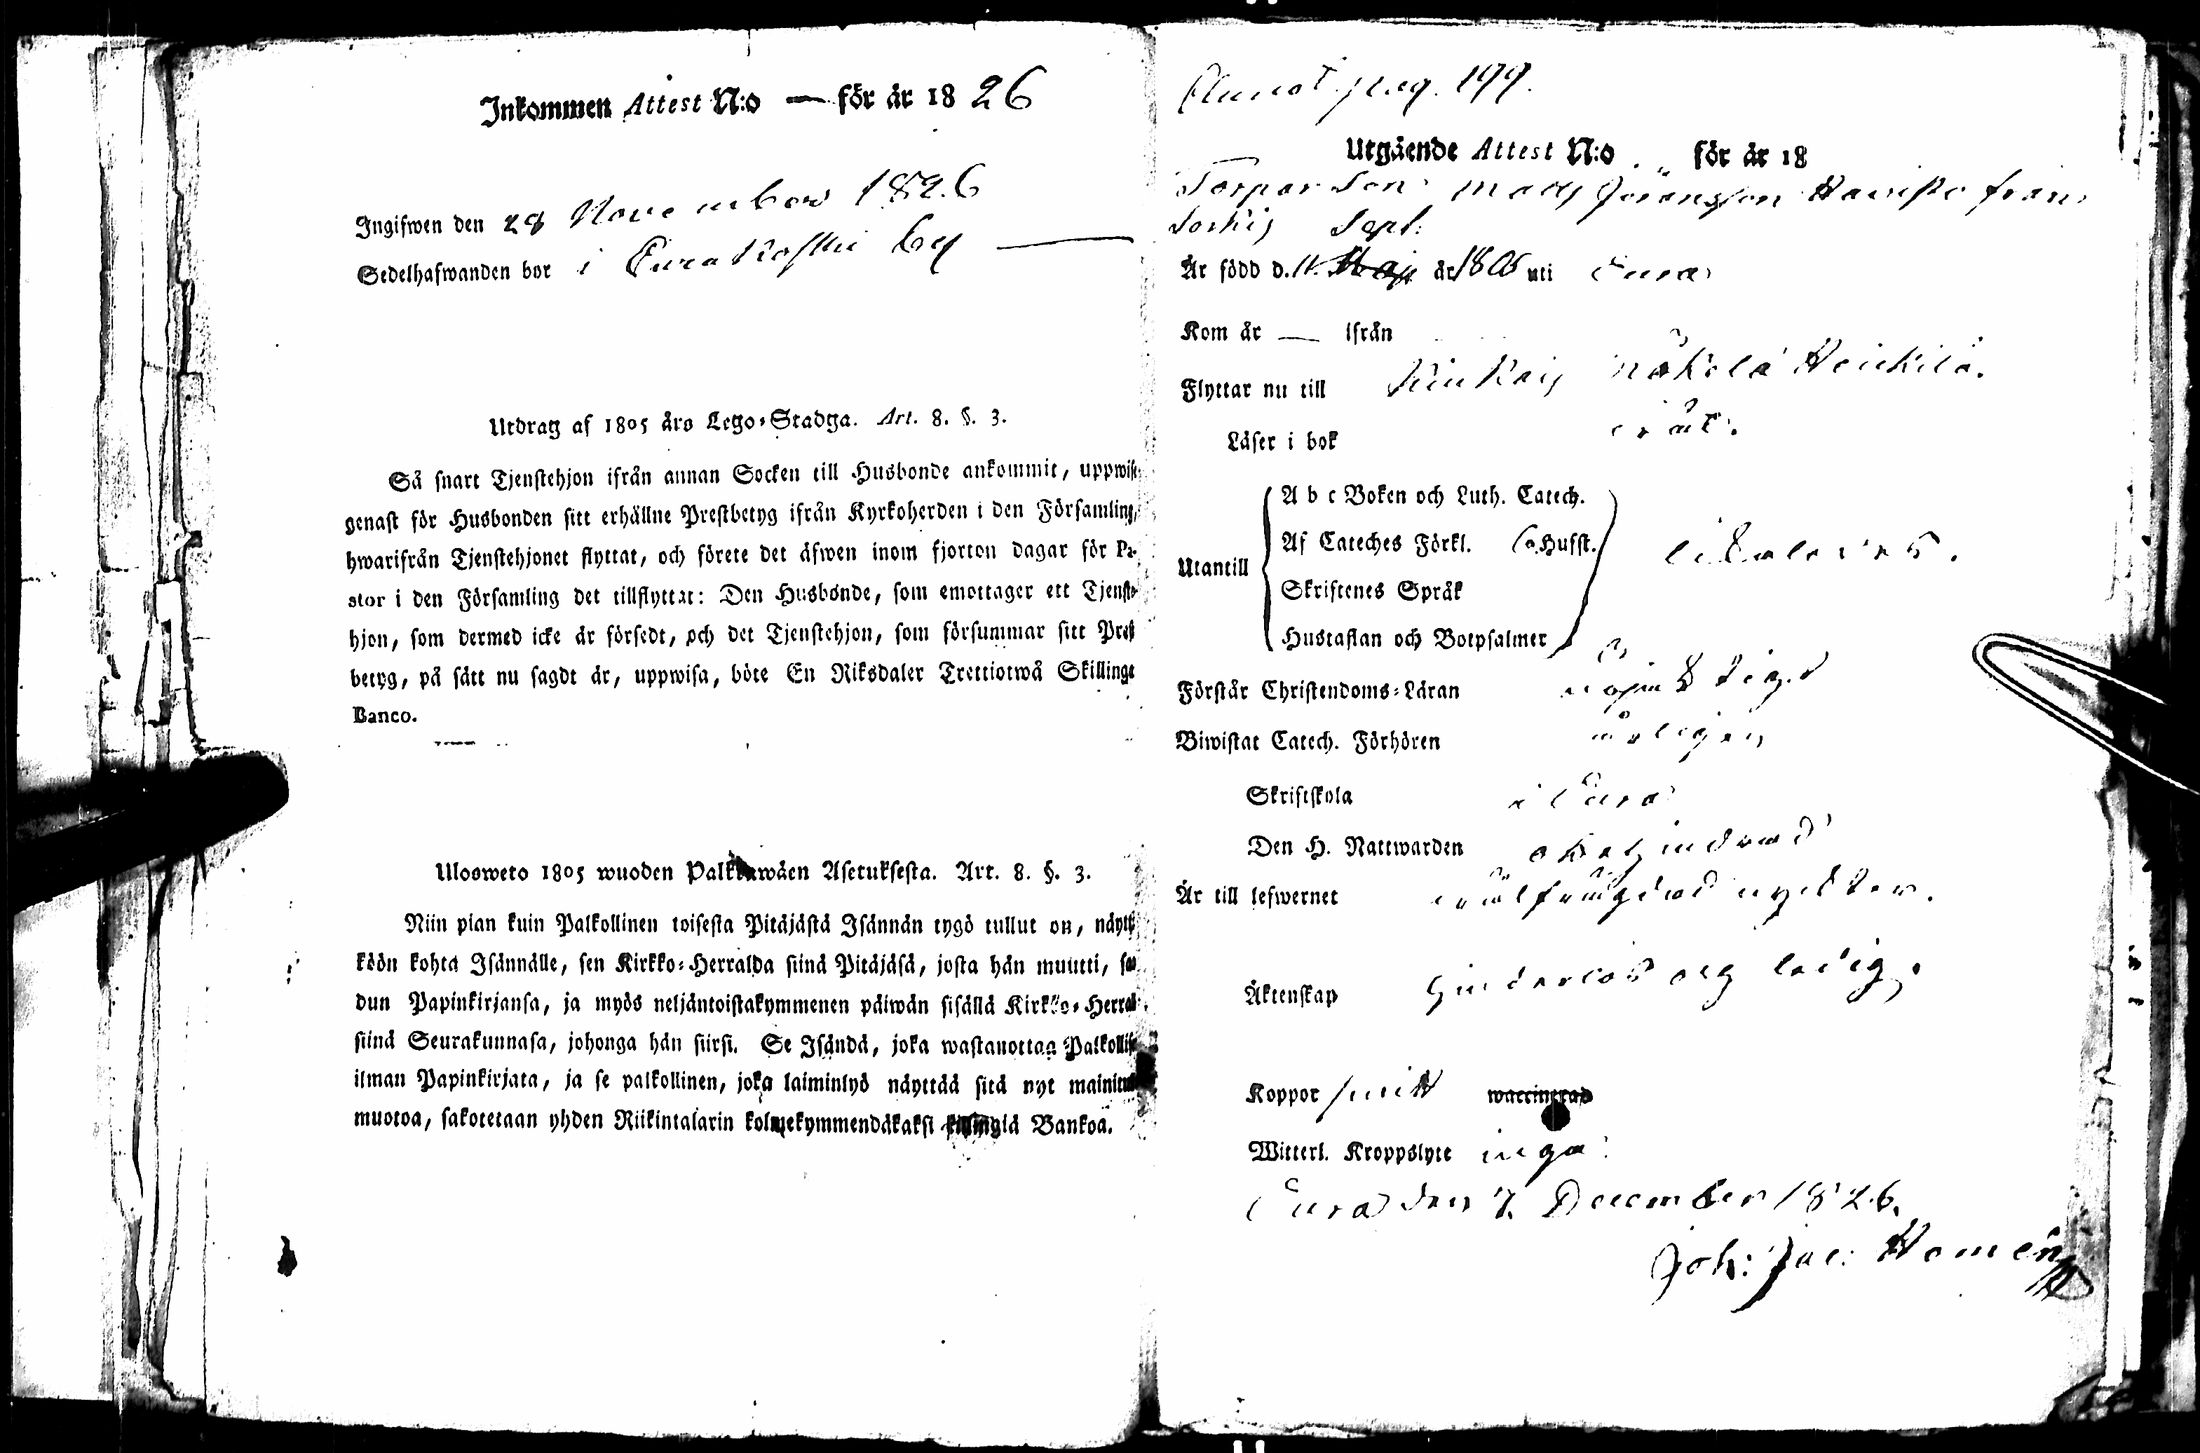 Inkommen Attest N:o — för år 1826
Ingifwen den 28 November 1826
Sedelhafwanden bor i Eura Koski by —
Utdrag af 1805 års Lego-Stadga. Art. 8. §. 3.
Så snart Tjenstehjon ifrån annan Socken till Husbonde ankommit, uppwise
genast för Husbonden sitt erhållne Prestbetyg ifrån Kyrkoherden i den Församling,
hwarifrån Tjenstehjonet flyttat, och förete det äfwen inom fjorton dagar för Pa-
stor i den Församling det tillflyttat: Den Husbonde, som emottager ett Tjenste-
hjon, som dermed icke är försedt, och det Tjenstehjon, som försummar sitt Prest
betyg, på sätt nu sagdt är, uppwisa, böte En Riksdaler Trettiotwå Skillingt
Banco.
Ulosweto 1805 wuoden Palkkawäen Asetuksesta. Art. 8. §. 3.
Niin pian kuin Palkollinen toisesta Pitäjästä Isännän tygö tullut on, näyttä
köön kohta Isännälle, sen Kirkko-Herralda siinä Pitäjäsä, josta hän muutti, saa
dun Papinkirjansa, ja myös neljäntoistakymmenen päiwän sisällä Kirkko-Herral
siinä Seurakunnasa, johonga hän siirsi. Se Isändä, joka wastanottaa Palkollis
ilman Papinkirjata, ja se palkollinen, joka laiminlyö näyttää sitä nyt mainitut
muotoa, sakotetaan yhden Riikintalarin kolmekymmendäkaksi killingiä Bankoa.
Annot. pag. 199.
Utgående Attest N:o för år 18
Torpar Son Mats Jöransson from
Sorkis Sept.
Är född d. 11. Maj år 1806 uti Eura
Kom år — ifrån
Flyttar nu till Kiukais Näkölä Heickilä.
Läser i bok rätt.
Utantill
A b c Boken och Luth. Catech.
Af Cateches Förkl. & Husst.
Skriftenes Språk
Hustaflan och Botpsalmer
likaledes.
Förstår Christendoms-Läran nöjaktigt
Biwistat Catech. Förhören årligen
Skriftskola i Eura
Den H. Nattwarden ohehindrad
Är till lefwernet wälfrägdad nyckter.
Äktenskap hinderlös och ledig.
Koppor haft waccinerad
Witterl. Kroppslyte inga
Eura den 7. December 1826.
Joh: Jac: Homén